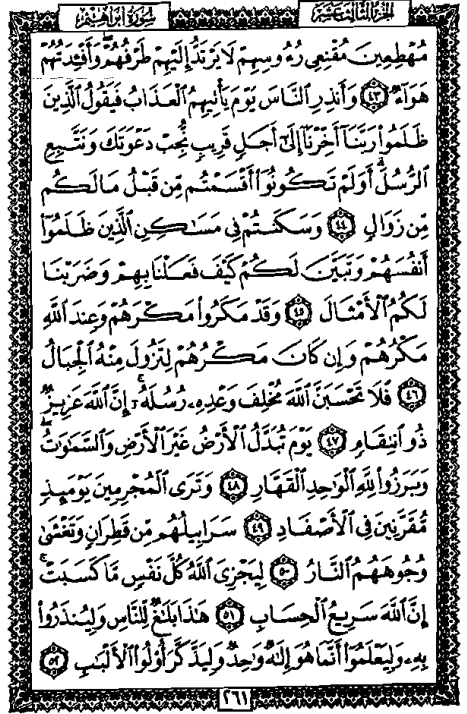 سُورَةُ إِبْرَاهِيمَ الجزء الثالث عشر
مُهْطِعِينَ مُقْنِعِي رُءُوسِهِمْ لَا يَرْتَدُّ إِلَيْهِمْ طَرْفُهُمْ ۖ وَأَفْـِٔدَتُهُمْ
هَوَآءٌ ٤٣ وَأَنذِرِ ٱلنَّاسَ يَوْمَ يَأْتِيهِمُ ٱلْعَذَابُ فَيَقُولُ ٱلَّذِينَ
ظَلَمُوا۟ رَبَّنَآ أَخِّرْنَآ إِلَىٰٓ أَجَلٍ قَرِيبٍ نُّجِبْ دَعْوَتَكَ وَنَتَّبِعِ
ٱلرُّسُلَ ۗ أَوَلَمْ تَكُونُوٓا۟ أَقْسَمْتُم مِّن قَبْلُ مَا لَكُم
مِّن زَوَالٍ ٤٤ وَسَكَنتُمْ فِي مَسَـٰكِنِ ٱلَّذِينَ ظَلَمُوٓا۟
أَنفُسَهُمْ وَتَبَيَّنَ لَكُمْ كَيْفَ فَعَلْنَا بِهِمْ وَضَرَبْنَا
لَكُمُ ٱلْأَمْثَالَ ٤٥ وَقَدْ مَكَرُوا۟ مَكْرَهُمْ وَعِندَ ٱللَّهِ
مَكْرُهُمْ وَإِن كَانَ مَكْرُهُمْ لِتَزُولَ مِنْهُ ٱلْجِبَالُ
٤٦ فَلَا تَحْسَبَنَّ ٱللَّهَ مُخْلِفَ وَعْدِهِۦ رُسُلَهُۥٓ ۗ إِنَّ ٱللَّهَ عَزِيزٌ
ذُو ٱنتِقَامٍ ٤٧ يَوْمَ تُبَدَّلُ ٱلْأَرْضُ غَيْرَ ٱلْأَرْضِ وَٱلسَّمَـٰوَٰتُ ۖ
وَبَرَزُوا۟ لِلَّهِ ٱلْوَٰحِدِ ٱلْقَهَّارِ ٤٨ وَتَرَى ٱلْمُجْرِمِينَ يَوْمَئِذٍ
مُّقَرَّنِينَ فِي ٱلْأَصْفَادِ ٤٩ سَرَابِيلُهُم مِّن قَطِرَانٍ وَتَغْشَىٰ
وُجُوهَهُمُ ٱلنَّارُ ٥٠ لِيَجْزِيَ ٱللَّهُ كُلَّ نَفْسٍ مَّا كَسَبَتْ ۚ
إِنَّ ٱللَّهَ سَرِيعُ ٱلْحِسَابِ ٥١ هَـٰذَا بَلَـٰغٌ لِّلنَّاسِ وَلِيُنذَرُوا۟
بِهِۦ وَلِيَعْلَمُوٓا۟ أَنَّمَا هُوَ إِلَـٰهٌ وَٰحِدٌ وَلِيَذَّكَّرَ أُو۟لُوا۟ ٱلْأَلْبَـٰبِ ٥٢
٢٦١